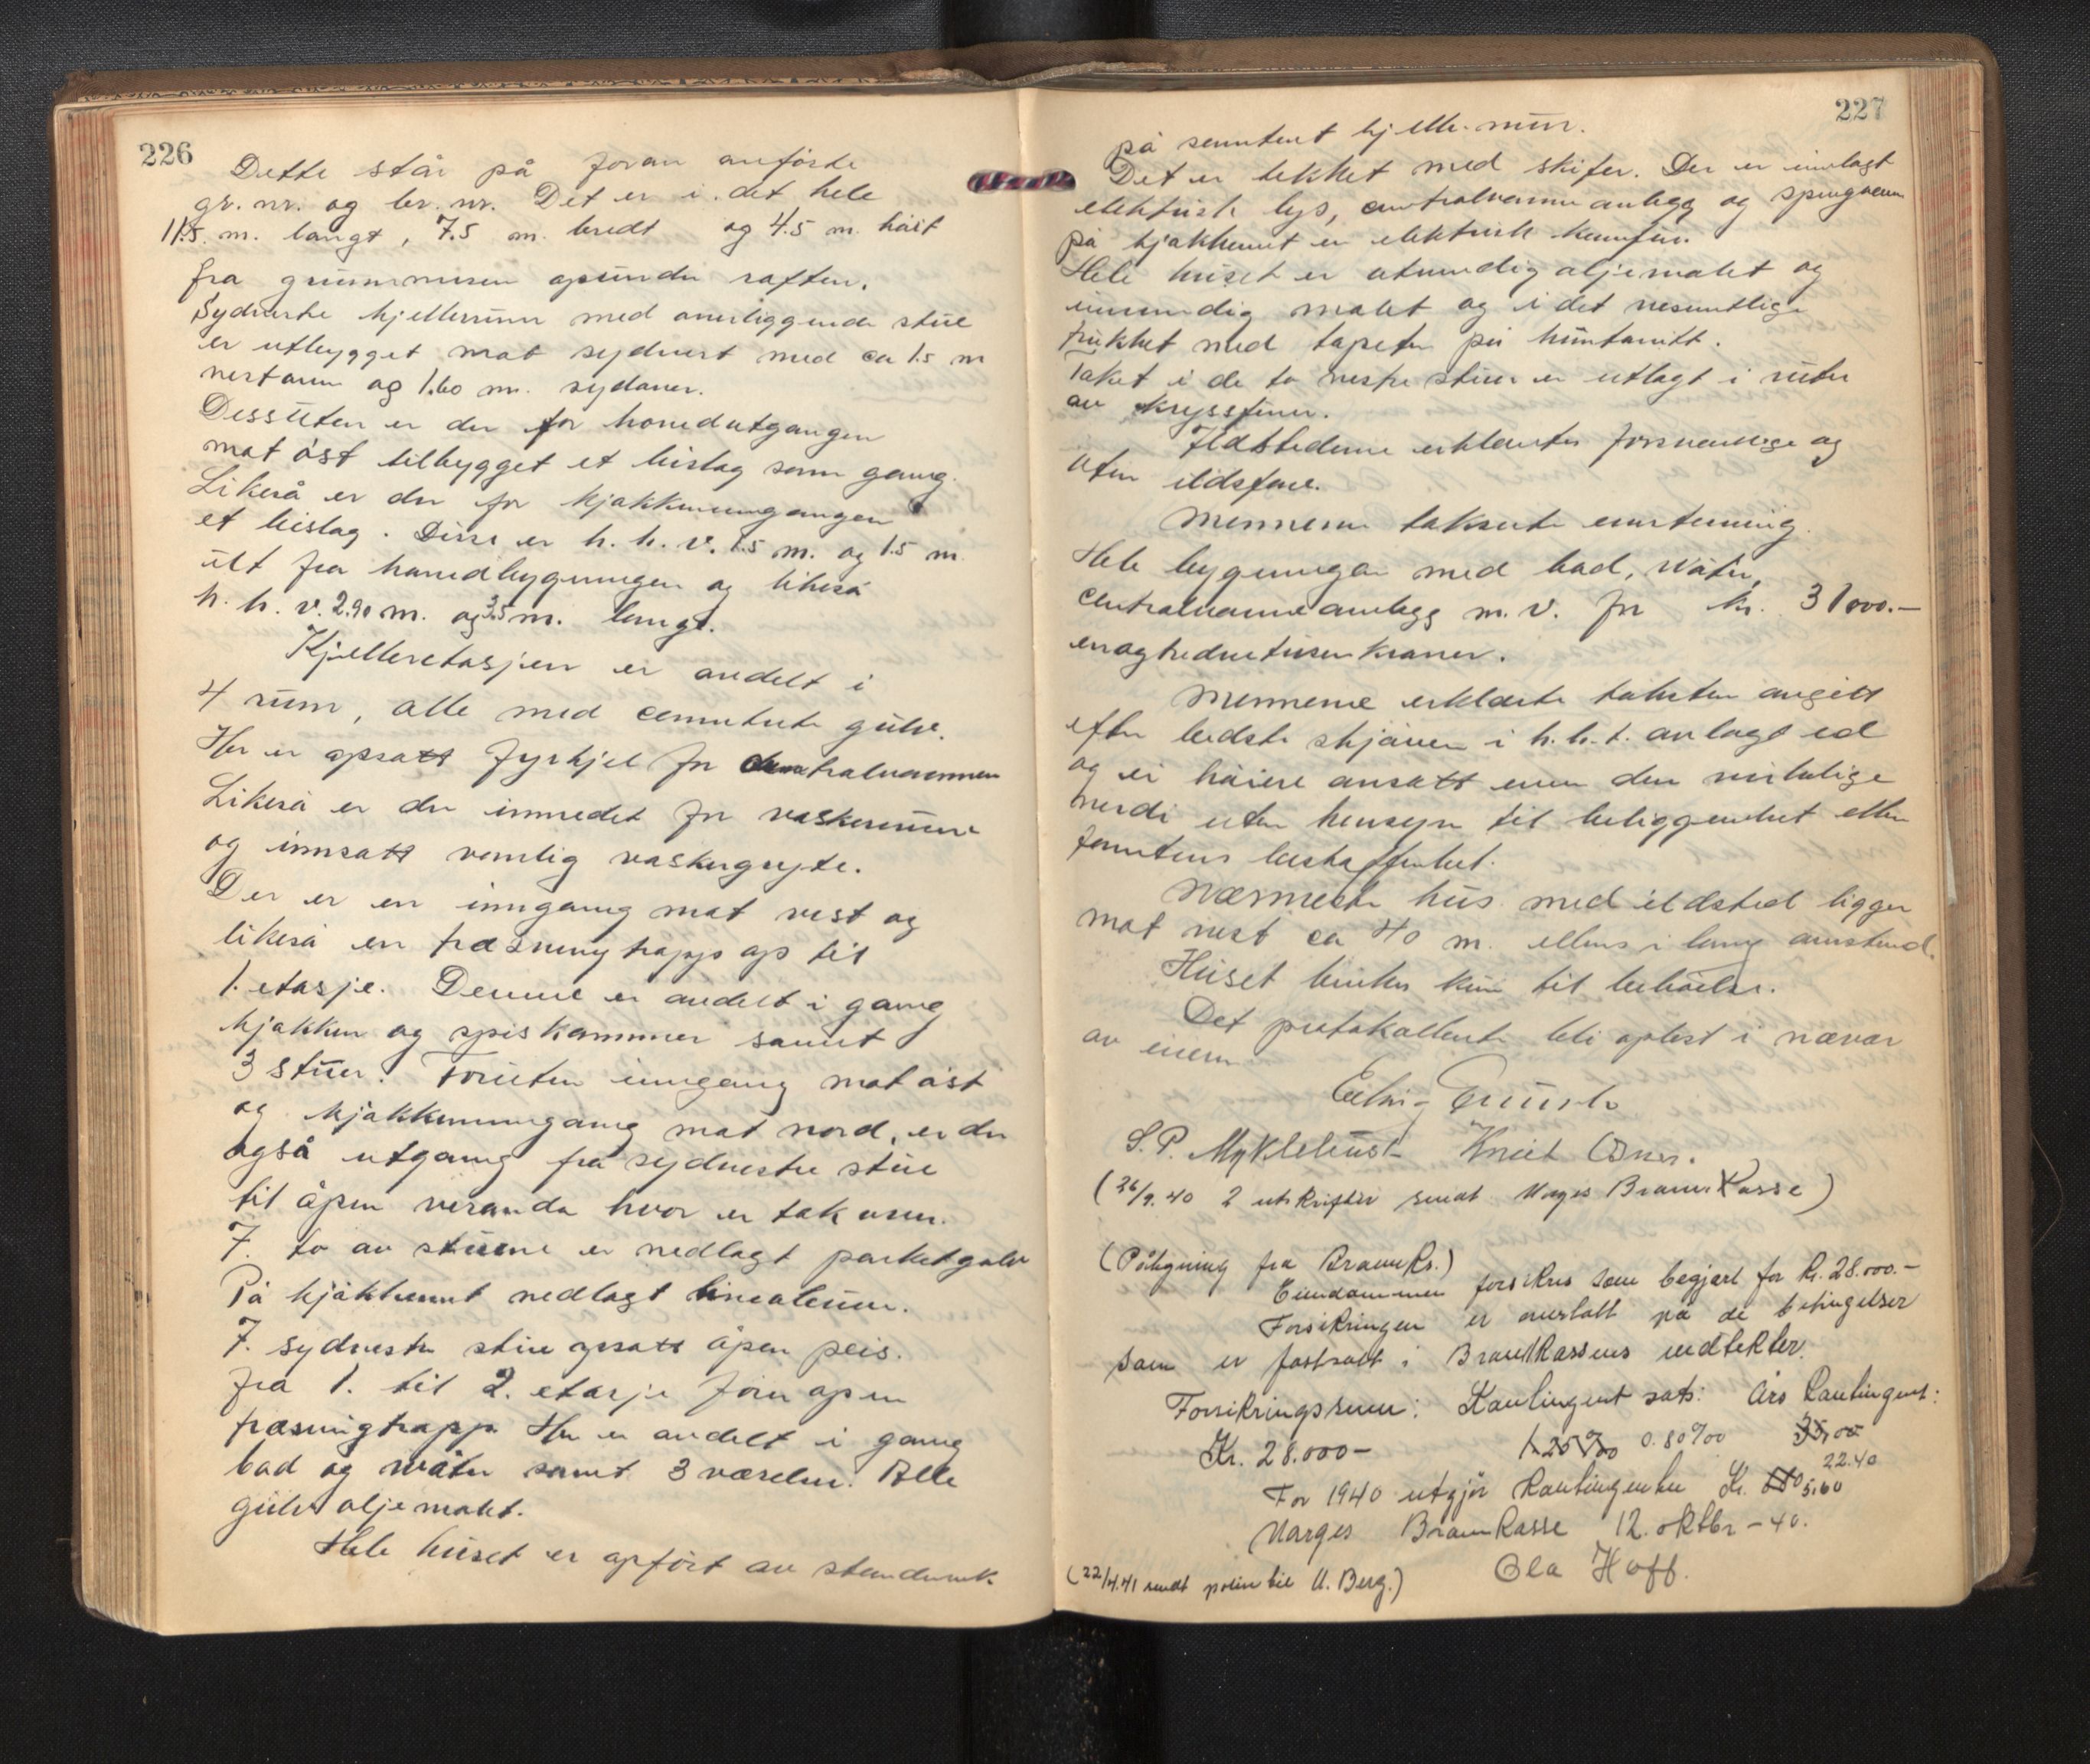 226
Dette står på foran anförte
gr. nr. og br. nr. Det er i det hele
11.5. m. langt, 7.5 m. bredt og 4.5 m. höit
fra grunnmuren opunder raften.
Sydvestre kjellerrum med overliggende stue
er utbygget mot sydvest med ca 1.5 m
vestover og 1.60 m. sydover.
Dessuten er der for hovedutgangen
mot öst tilbygget et bislag som gang.
Likeså er der for kjökkeninngangen
et bislag. Disse er h. h. v. 1.5 m. og 1.5 m.
ut fra hovedbygningen og likeså
h. h. v. 2.90 m. og 3.5 m. lange.
Kjelleretasjen er avdelt i
4 rum, alle med cementerte gulv.
Her er opsatt fyrkjel for centralvarmen
Likeså er der innredet for vaskerum
og innsatt vanlig vaskegryte.
Der er en inngang mot vest og
likeså en fræsning trapp op til
1. etasje. Denne er avdelt i gang
kjökken og spiskammer samt
3 stuer. Foruten inngang mot öst
og kjökkeninngang mot nord, er der
også utgang fra sydvestre stue
til åpen veranda hvor er tak over.
I. to av stuene er nedlagt parketgolv
På kjökkenet nedlagt linoleum.
I. sydvestre stue opsatt åpen peis.
Fra 1. til 2. etasje förer open
fræsningtrapp. Her er avdelt i gang
bad og wäter samt 3 værelser. Alle
gulv oljemalet.
Hele huset er opfört av stenderverk
227
på sementert kjeller-mur.
Det er tekket med skifer. Der er innlagt
elektrisk lys, centralvarmeanlegg og
på kjökkenet er elektrisk komfur.
Hele huset er utvendig oljemalet og
innvendig malet og i det vesentlige
trukket med tapeter på huntonitt.
Taket i de to vestre stuer er utlagt i ruter
av kryssfiner.
Ildstederne erklærtes forsvarlige og
uten ildsfare.
Mennene takserte enstemmig.
Hele bygningen med bad, wäter,
centralvarmeanlegg m. v. for kr. 31000.-
enogtredvetusen kroner.
Mennene erklærte taksten avgitt
efter bedste skjönn i h. h. t. avlagt ed
og ei höiere ansatt enn den virkelige
verdi uten hensyn til beliggenhet eller
tomtens beskaffenhet.
Nærmeste hus med ildsted ligger
mot vest ca 40 m. ellers i lang avstand.
Huset brukes kun til beboelse.
Det protokollerte ble oplest i nævær
av eieren.
S. P. Myklebust Knut
(26/9.40 2 utskrifter sendt Norges BrannKasse)
(Påtegning fra BrannKs.)
Eiendommen forsikres som begjært for kr. 28.000.-
Forsikringen er overtatt på de betingelser
som er fastsatt i BrannKassens vedtekter.
Forsikringssum: Kontingent sats: Års Kontingent:
Kr. 28.000- 1.25 0/00 0.80 0/00 35,00
22.40
For 1940 utgjör Kontingenten Kr. 5,60
Norges BrannKasse 12. oktbr - 40.
Ola Hoff.
(22/4.41 sendt polise til U. Berg.)